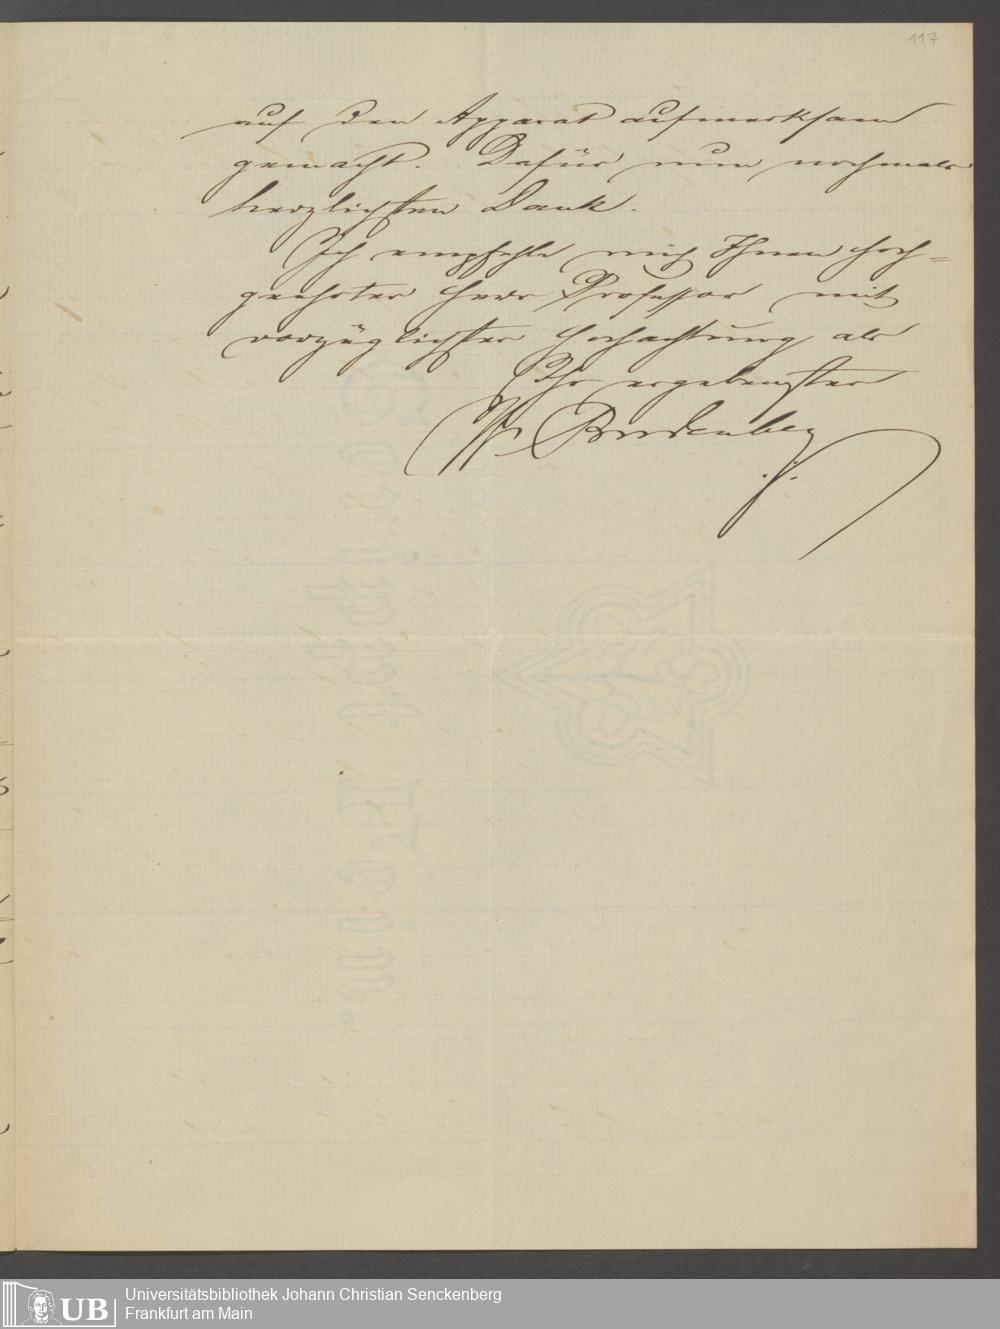 117
auf den Apparat aufmerksam
gemacht. Dafür nun nochmals
herzlichsten Dank.
Ich empfehle mich Ihnen hoch=
geehrter Herr Professor mit
vorzüglichster Hochachtung als
Ihr ergebenster
Budenberg
UB
Universitätsbibliothek Johann Christian Senckenberg
Frankfurt am Main